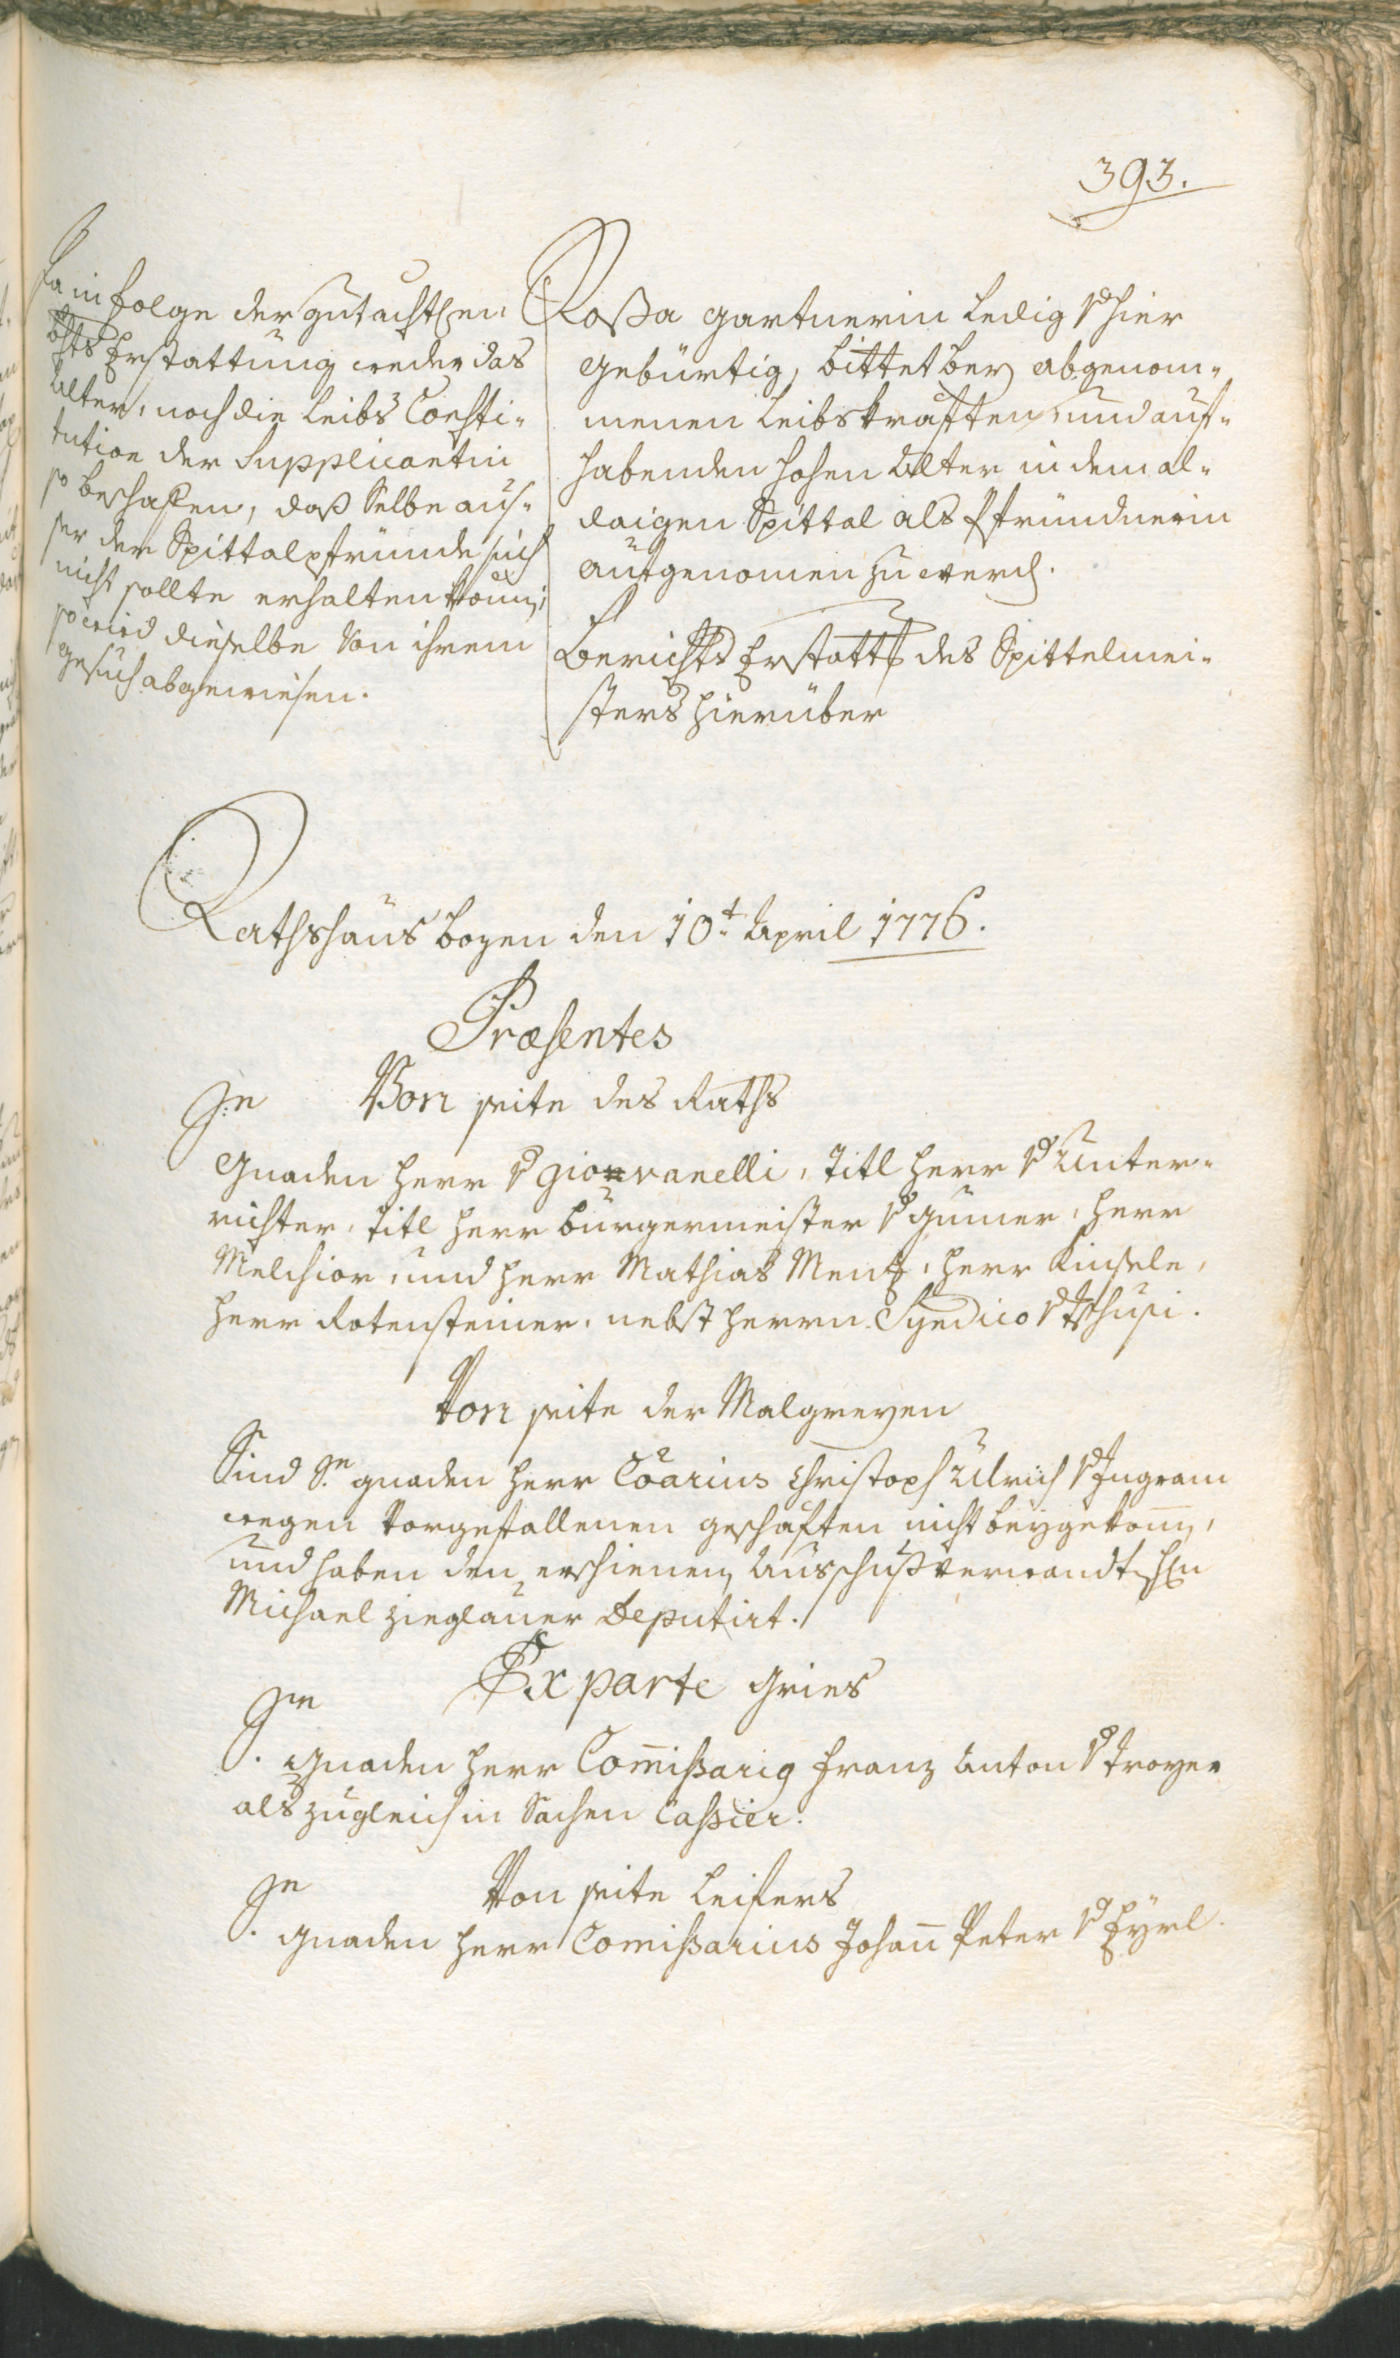 393.
Da in folge der gutachtlen
bchts Erstattung weder das
Alter, noch die Leibs Consti-
tution der Supplicantin
so beschafen, daß Selbe aus-
ser der Spittalpfründe sich
nicht sollte erhalten könn,
so wird dieselbe von ihrem
gesuch abgewiesen.
Rosa gartnerin ledig v hier
gebürtig, bittet bey abgenom-
menen Leibskräften, und auf-
habenden hohen Alter in dem al-
daigen Spittal als Pfründnerin
aufgenomen zu werd.
Berichts Erstattg des Spittelmei-
sters hierüber
Rathshaus bozen den 10t April 1776.
Præsentes
Von seite des Raths
Sr
Gnaden herr v Giovanelli, Titl herr v Unter-
richter, Titl herr burgermeister v gumer, herr
Melchior, und herr Mathias Menz, herr Kinsele,
herr Rotensteiner, nebst herrn Syndico v Tschusi.
Von seite der Malgreyen
Sind Sn gnaden herr Coarius Christoph Ulrich v Ingram
wegen vorgefallenen geschäften nicht beygekom,
und haben den erschienen Ausschußverwandt hln
Michael zieglauer Deputirt.
Ex parte gries
Se
gnaden herr Comißarig franz Anton v troyer
als zugleich in Sachen Cassier.
Von seite Leifers
Se
gnaden herr Comißarius Johan Peter v Eyrl.